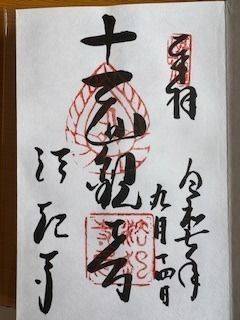 奉拝
令和七年
九月十四日
十一面観音
法起寺